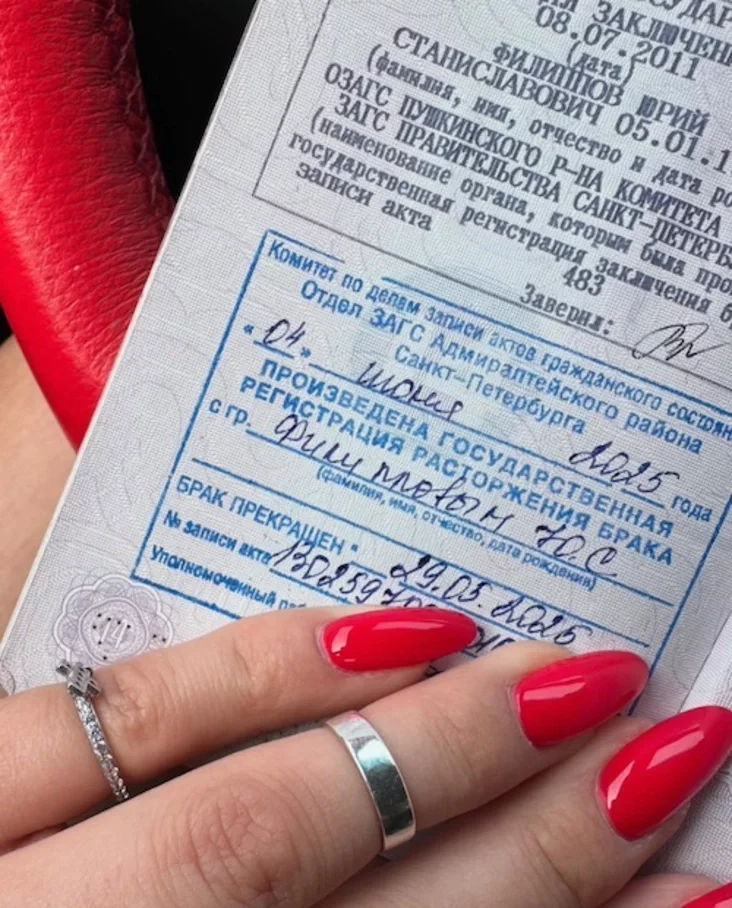 ЗАКЛЮЧЕН
08.07.2011
(дата)
ФИЛИППОВ ЮРИЙ
СТАНИСЛАВОВИЧ 05.01.1
(фамилия, имя, отчество и дата ро
ОЗАГС ПУШКИНСКОГО Р-НА КОМИТЕТА
ЗАГС ПРАВИТЕЛЬСТВА САНКТ-ПЕТЕРБ
(наименование органа, которым была про
государственная регистрация заключения б
записи акта
483
Заверил:
Комитет по делам записи актов гражданского состоян
Отдел ЗАГС Адмиралтейского района
Санкт-Петербурга
« 04 » июня 2025 года
ПРОИЗВЕДЕНА ГОСУДАРСТВЕННАЯ
РЕГИСТРАЦИЯ РАСТОРЖЕНИЯ БРАКА
с гр. Филипповым Ю.С
(фамилия, имя, отчество, дата рождения)
БРАК ПРЕКРАЩЕН " 29.05.2025
№ записи акта 1302597
Уполномоченный
14